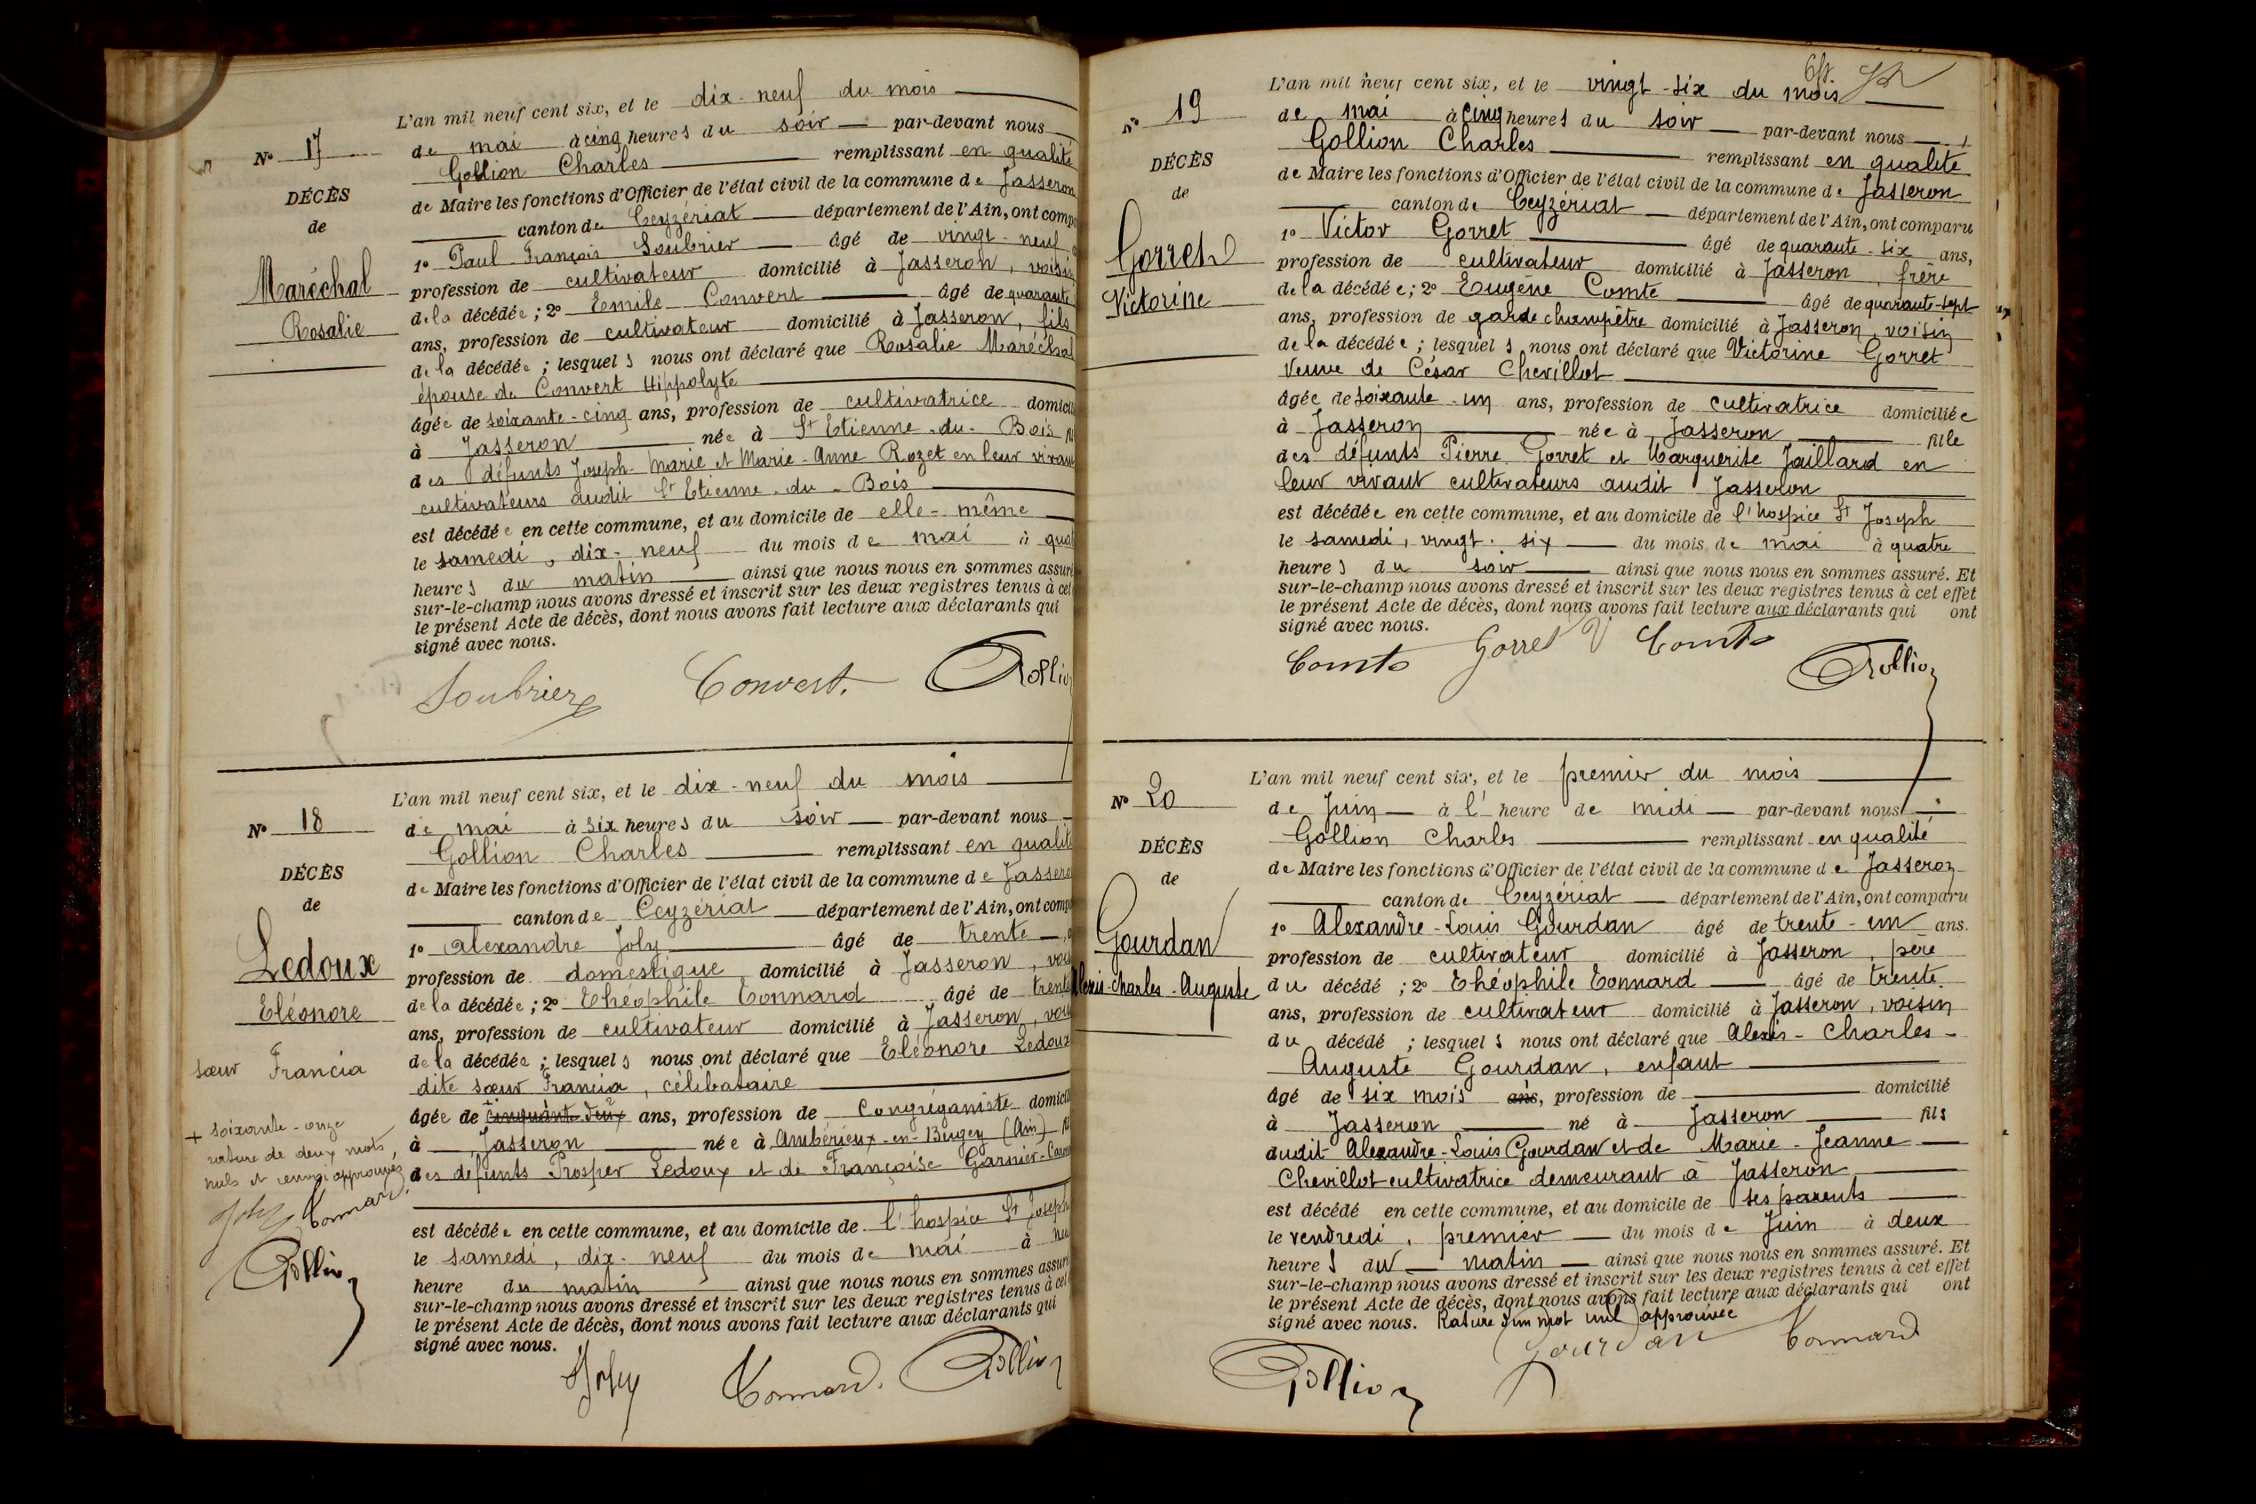 N° 17
DÉCÈS
de
Maréchal
Rosalie
L'an mil neuf cent six, et le dix-neuf du mois
de mai à cinq heures du soir par-devant nous
Gollion Charles remplissant en qualité
de Maire les fonctions d'Officier de l'état civil de la commune de Jasseron
canton de Ceyzériat département de l'Ain, ont compa
1° Paul François Soubrier âgé de vingt-neuf
profession de cultivateur domicilié à Jasseron, voisin
de la décédée ; 2° Emile Convert âgé de quarante
ans, profession de cultivateur domicilié à Jasseron, fils
de la décédée ; lesquels nous ont déclaré que Rosalie Maréchal
épouse de Convert Hippolyte
âgée de soixante-cinq ans, profession de cultivatrice domicil
à Jasseron née à St Etienne-du-Bois
des défunts Joseph-Marie et Marie-Anne Rozet en leur vivant
cultivateurs audit St Etienne-du-Bois
est décédée en cette commune, et au domicile de elle-même
le samedi, dix-neuf du mois de mai à quat
heures du matin ainsi que nous nous en sommes assuré
sur-le-champ nous avons dressé et inscrit sur les deux registres tenus à cet
le présent Acte de décès, dont nous avons fait lecture aux déclarants qui
signé avec nous.
Soubrier Convert. Gollion
N° 18
DÉCÈS
de
Ledoux
Eléonore
sœur Francia
+ soixante-onze
rature de deux mots,
nuls et renvoi approuvés
Joly Connard.
Gollion
L'an mil neuf cent six, et le dix-neuf du mois
de mai à six heures du soir par-devant nous
Gollion Charles remplissant en qualité
de Maire les fonctions d'Officier de l'état civil de la commune de Jassero
canton de Ceyzériat département de l'Ain, ont compa
1° Alexandre Joly âgé de trente
profession de domestique domicilié à Jasseron, vois
de la décédée ; 2° Théophile Connard âgé de trente
ans, profession de cultivateur domicilié à Jasseron, vois
de la décédée ; lesquels nous ont déclaré que Eléonore Ledoux
dite sœur Francia, célibataire
âgée de + cinquante-deux ans, profession de Congréganiste domicil
à Jasseron née à Ambérieux-en-Bugey (Ain)
des défunts Prosper Ledoux et de Françoise Garnier
est décédée en cette commune, et au domicile de l'hospice St Joseph
le samedi, dix-neuf du mois de mai à
heure du matin ainsi que nous nous en sommes assuré
sur-le-champ nous avons dressé et inscrit sur les deux registres tenus à cet
le présent Acte de décès, dont nous avons fait lecture aux déclarants qui
signé avec nous.
Joly Connard. Gollion
N° 19
DÉCÈS
de
Gorret
Victorine
L'an mil neuf cent six, et le vingt-six du mois
de mai à cinq heures du soir par-devant nous
Gollion Charles remplissant en qualité
de Maire les fonctions d'Officier de l'état civil de la commune de Jasseron
canton de Ceyzériat département de l'Ain, ont comparu
1° Victor Gorret âgé de quarante-six ans,
profession de cultivateur domicilié à Jasseron, frère
de la décédée ; 2° Eugène Comte âgé de quarante-sept
ans, profession de garde champêtre domicilié à Jasseron, voisin
de la décédée ; lesquels nous ont déclaré que Victorine Gorret
Veuve de César Chevillot
âgée de soixante-un ans, profession de cultivatrice domiciliée
à Jasseron née à Jasseron fille
des défunts Pierre Gorret et Marguerite Jaillard en
leur vivant cultivateurs audit Jasseron
est décédée en cette commune, et au domicile de l'hospice St Joseph
le samedi, vingt-six du mois de mai à quatre
heures du soir ainsi que nous nous en sommes assuré. Et
sur-le-champ nous avons dressé et inscrit sur les deux registres tenus à cet effet
le présent Acte de décès, dont nous avons fait lecture aux déclarants qui ont
signé avec nous.
Comte Gorret V Comte
Gollion
N° 20
DÉCÈS
de
Gourdan
Alexis-Charles-Auguste
L'an mil neuf cent six, et le premier du mois
de Juin à l'heure de midi par-devant nous
Gollion Charles remplissant en qualité
de Maire les fonctions d'Officier de l'état civil de la commune de Jasseron
canton de Ceyzériat département de l'Ain, ont comparu
1° Alexandre-Louis Gourdan âgé de trente-un ans.
profession de cultivateur domicilié à Jasseron, père
du décédé ; 2° Théophile Connard âgé de trente
ans, profession de cultivateur domicilié à Jasseron, voisin
du décédé ; lesquels nous ont déclaré que Alexis-Charles-
Auguste Gourdan, enfant
âgé de six mois ans, profession de domicilié
à Jasseron né à Jasseron fils
audit Alexandre-Louis Gourdan et de Marie-Jeanne
Chevillot cultivatrice demeurant à Jasseron
est décédé en cette commune, et au domicile de ses parents
le vendredi, premier du mois de Juin à deux
heures du matin ainsi que nous nous en sommes assuré. Et
sur-le-champ nous avons dressé et inscrit sur les deux registres tenus à cet effet
le présent Acte de décès, dont nous avons fait lecture aux déclarants qui ont
signé avec nous. Rature d'un mot nul approuvée
Gollion Gourdan Connard